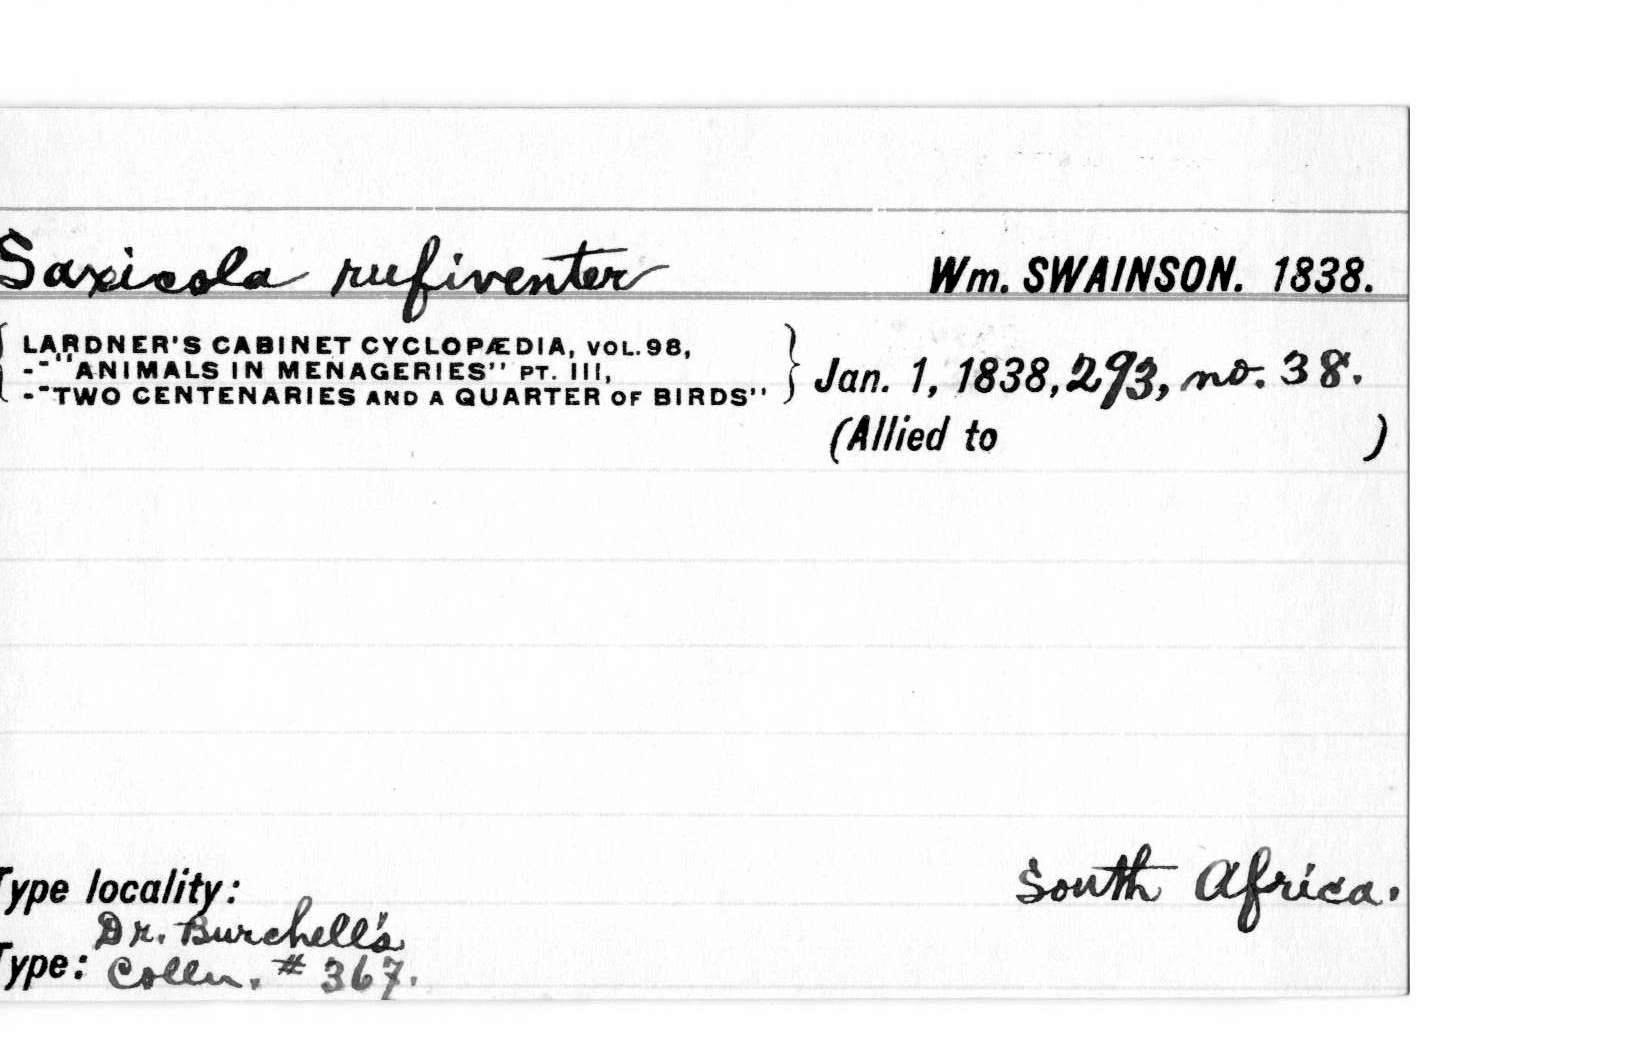 Saxicola rufiventer Wm. SWAINSON. 1838.
{ LARDNER'S CABINET CYCLOPÆDIA, VOL. 98,
-- "ANIMALS IN MENAGERIES" PT. III,
-- "TWO CENTENARIES AND A QUARTER OF BIRDS" } Jan. 1, 1838, 293, no. 38.
(Allied to )
South Africa.
Type locality:
Dr. Burchell's
Type: Colln. # 367.